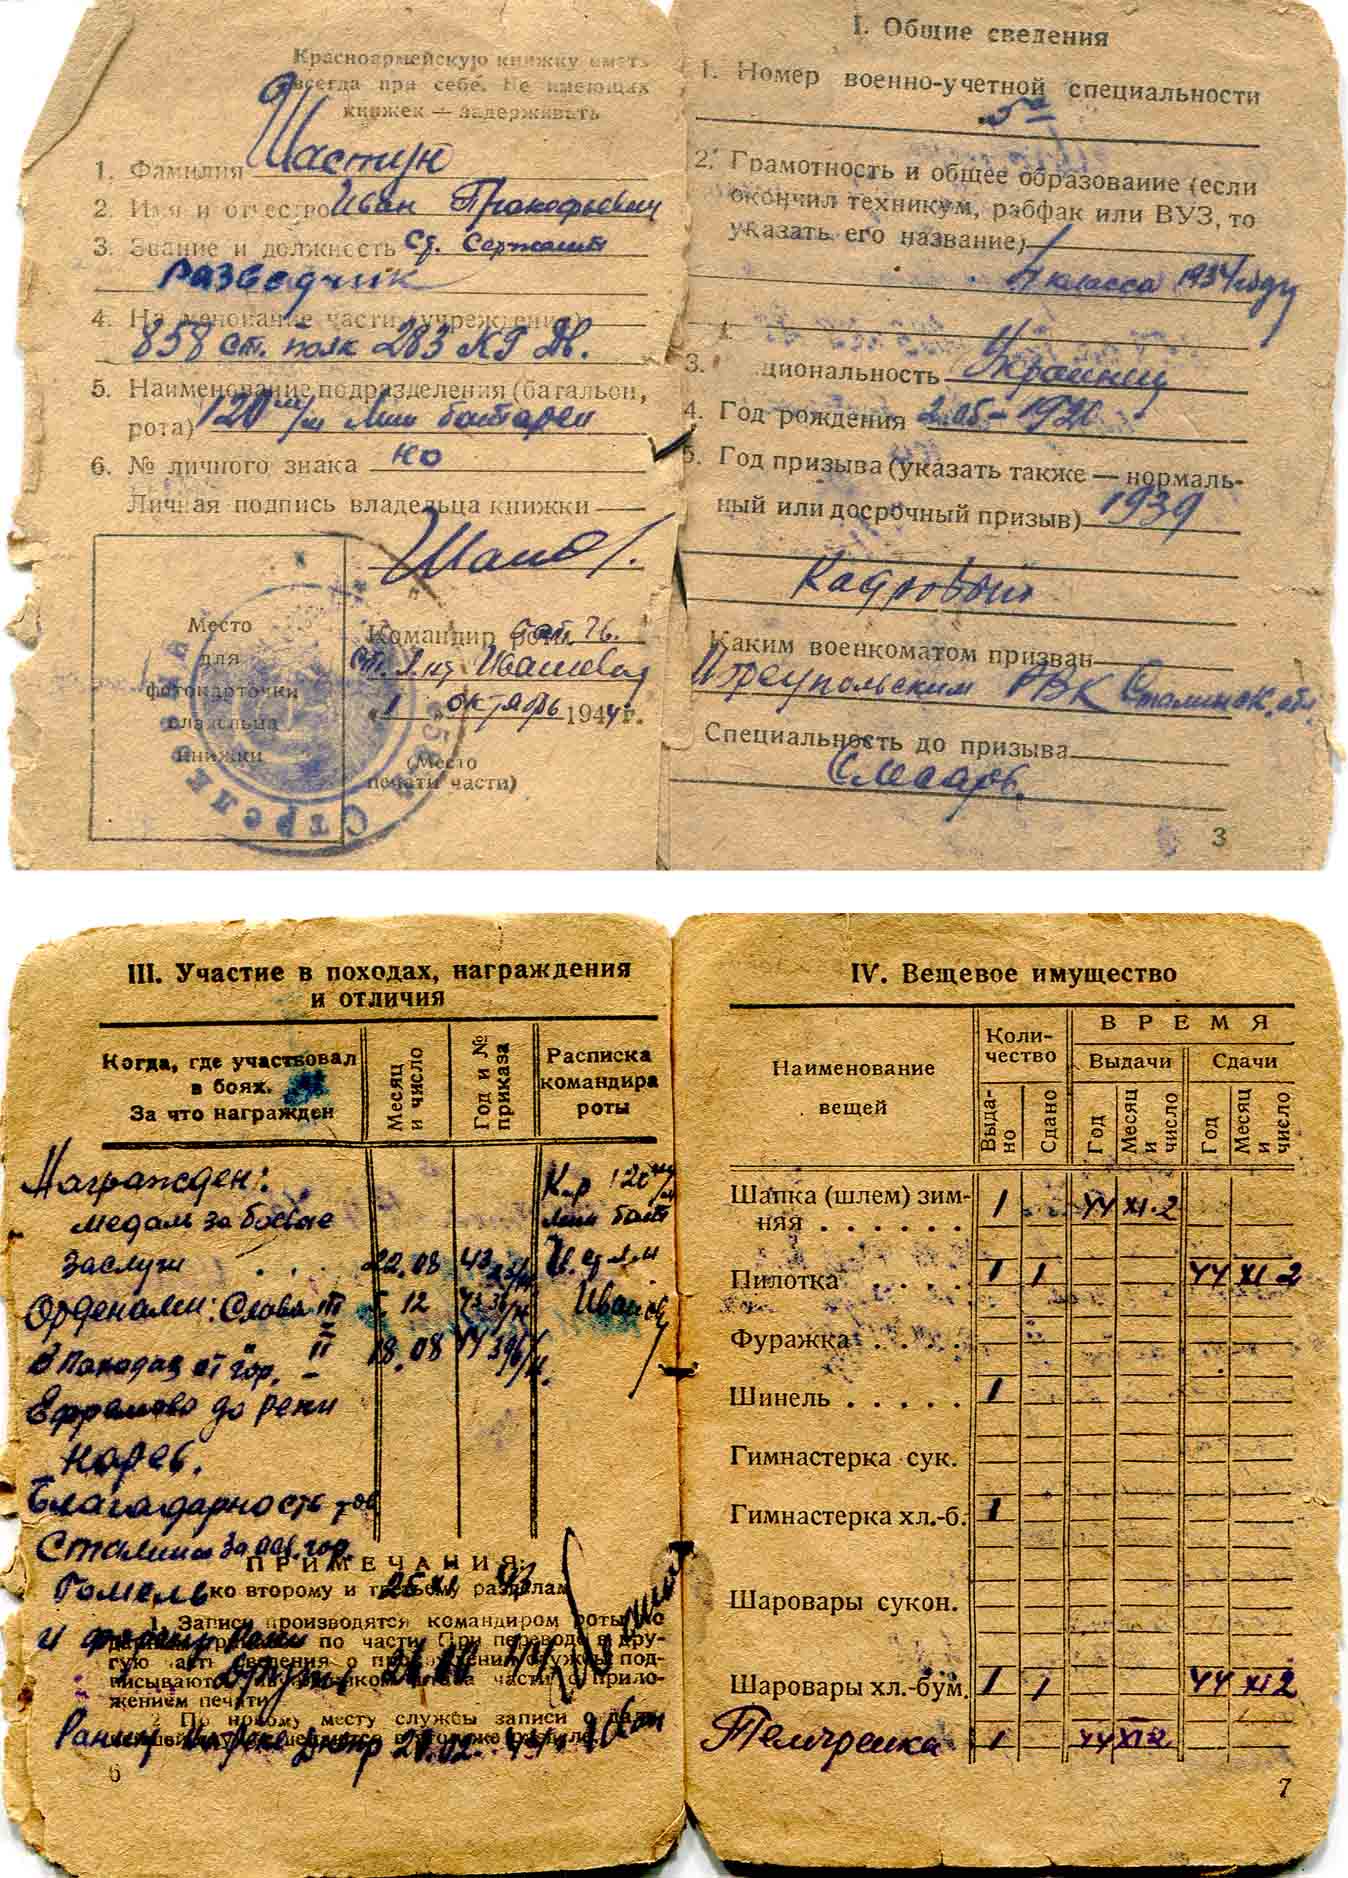 Красноармейскую книжку иметь
всегда при себе. Не имеющих
книжек — задерживать
1. Фамилия Шастун
2. Имя и отчество Иван Прокофьевич
3. Звание и должность Ст. Сержант
Разведчик
4. На менование части (учреждения)
858 ст. полк 283 КГ Дв.
5. Наименование подразделения (батальон,
рота) 120 м/м Мин батареи
6. № личного знака но
Личная подпись владельца книжки
Место
для
фотокарточки
владельца
книжки
Командир роты
Ст. Л-нт
„ 1 „ октябрь 1944 г.
(Место
печати части)
I. Общие сведения
1. Номер военно-учетной специальности
2. Грамотность и общее образование (если
окончил техникум, рабфак или ВУЗ, то
указать его название)
4 класса 1934 году
3. циональность Украинец
4. Год рождения 2.05-1920
5. Год призыва (указать также — нормаль-
ный или досрочный призыв) 1939
Кадровый
Каким военкоматом призван
РВК Сталинск. обл.
Специальность до призыва
Слесарь.
3
III. Участие в походах, награждения
и отличия
Когда, где участвовал
в боях.
За что награжден
Месяц
и число
Год и №
приказа
Расписка
командира
роты
Награжден:
К-р 120 м/м
медаль за боевые
мин бат
заслуги . . . 22.08 43
Орденами: Слава III 12
В Походах от гор. II 18.08 44
Ефремово до реки
Нарев.
Благадарность тов
Сталина за осв. гор
ПРИМЕЧАНИЯ
ко второму и третьему разделам
Гомель 26 XI 43
1. Записи производятся командиром роты по
по части. При переводе в дру-
гую часть сведения о прохождении службы под-
писываются части с прило-
жением печати
2. По новому месту службы записи о даль-
Ранен Днепр 21.02. 44
6
IV. Вещевое имущество
Наименование
вещей
Коли-
чество
ВРЕМЯ
Выдачи
Сдачи
Выда-
но
Сдано
Год
Месяц
и
число
Год
Месяц
и
число
Шапка (шлем) зим-
няя . . . . . . 1 44 XI.2
Пилотка . . . . 1 1 44 XI 2
Фуражка . . . .
Шинель . . . . . 1
Гимнастерка сук.
Гимнастерка хл.-б. 1
Шаровары сукон.
Шаровары хл.-бум. 1 1 44 XI 2
Телогрейка 1 44 XI 2
7